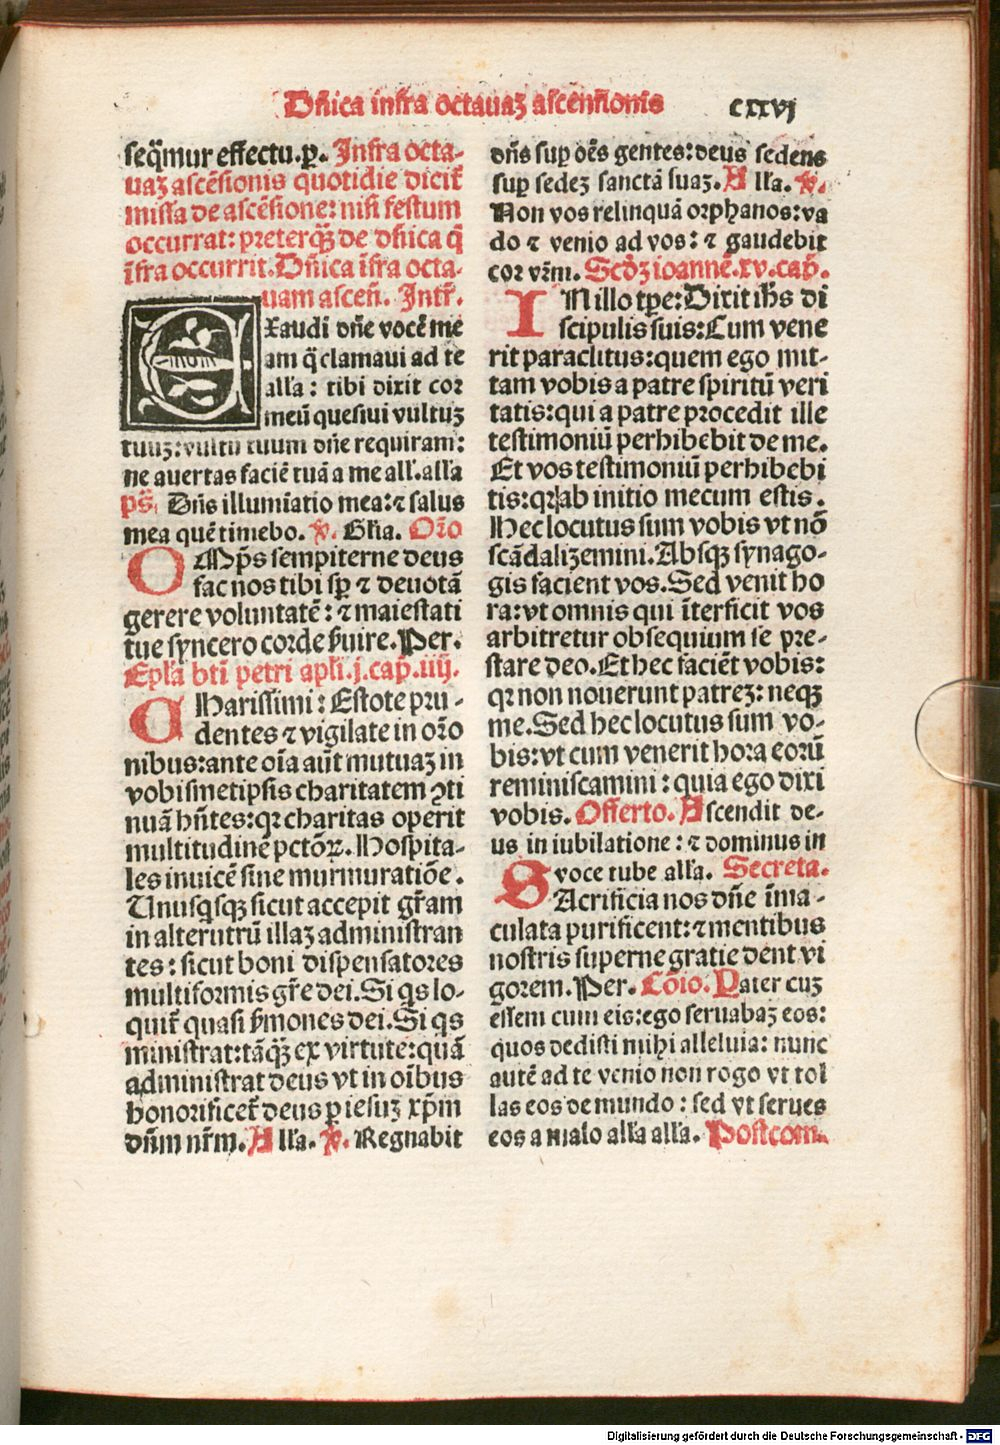 Dñica infra octauaȝ ascensionis cxxvj
seq̃mur effectu.ꝑ. Infra octa-
uaȝ ascẽsionis quotidie dicit̃
missa de ascẽsione: nisi festum
occurrat: preterq̃ȝ de dñica q̃
ĩfra occurrit. Dñica ĩfra octa-
uam asceñ. Intr̃.
EXaudi dñe vocẽ me
am q̃ clamaui ad te
alla: tibi dixit cor
meũ quesiui vultuȝ
tuuȝ: vultũ tuum dñe requiram:
ne auertas faciẽ tuã a me all̃. alla
p̃s. Dñs illumĩatio mea: ⁊ salus
mea quẽ timebo. ℣. Glia. Or̃o
OMp̃s sempiterne deus
fac nos tibi sp̃ ⁊ deuotã
gerere voluntatẽ: ⁊ maiestati
tue syncero corde ẜuire. Per.
Epl̃a bt̃i petri apl̃i.j.cap̃.iiij.
CHarissimi: Estote pru-
dentes ⁊ vigilate in or̃o
nibus: ante oĩa aũt mutuaȝ in
vobismetipsis charitatem ꝯti
nuã hñtes: qꝛ charitas operit
multitudinẽ pctõꝝ. Hospita-
les inuicẽ sine murmuratiõe.
Unusq̃sqȝ sicut accepit gr̃am
in alterutrũ illaȝ administran
tes: sicut boni dispensatores
multiformis gr̃e dei. Si q̃s lo-
quit̃ quasi ẜmones dei. Si q̃s
ministrat: tãq̃ȝ ex virtute: quã
administrat deus vt in oĩbus
honorificet̃ deus ꝑ iesuȝ xp̃m
dñm nr̃m. Alla. ℣. Regnabit
dñs suꝑ oẽs gentes: deus sedens
suꝑ sedeȝ sanctã suaȝ. Alla. ℣.
Non vos relinquã orphanos: va
do ⁊ venio ad vos: ⁊ gaudebit
cor vr̃m. Scd̃ȝ ioannẽ.xv.cap̃.
IN illo tꝑe: Dixit ih̃s di
scipulis suis: Cum vene
rit paraclitus: quem ego mit-
tam vobis a patre spiritũ veri
tatis: qui a patre procedit ille
testimoniũ perhibebit de me.
Et vos testimoniũ perhibebi
tis: qꝛ ab initio mecum estis.
Hec locutus sum vobis vt nõ
scãdalizemini. Absqȝ synago-
gis facient vos. Sed venit ho
ra: vt omnis qui ĩterficit vos
arbitretur obsequium se pre-
stare deo. Et hec faciẽt vobis:
qꝛ non nouerunt patreȝ: neqȝ
me. Sed hec locutus sum vo-
bis: vt cum venerit hora eorũ
reminiscamini: quia ego dixi
vobis. Offerto. Ascendit de-
us in iubilatione: ⁊ dominus in
voce tube alla. Secreta.
SAcrificia nos dñe ĩma-
culata purificent: ⁊ mentibus
nostris superne gratie dent vi
gorem. Per. Cõio. Pater cuȝ
essem cum eis: ego seruabaȝ eos:
quos dedisti mihi alleluia: nunc
autẽ ad te venio non rogo vt tol
las eos de mundo: sed vt serues
eos a malo alla alla. Postcom.
Digitalisierung gefördert durch die Deutsche Forschungsgemeinschaft - DFG